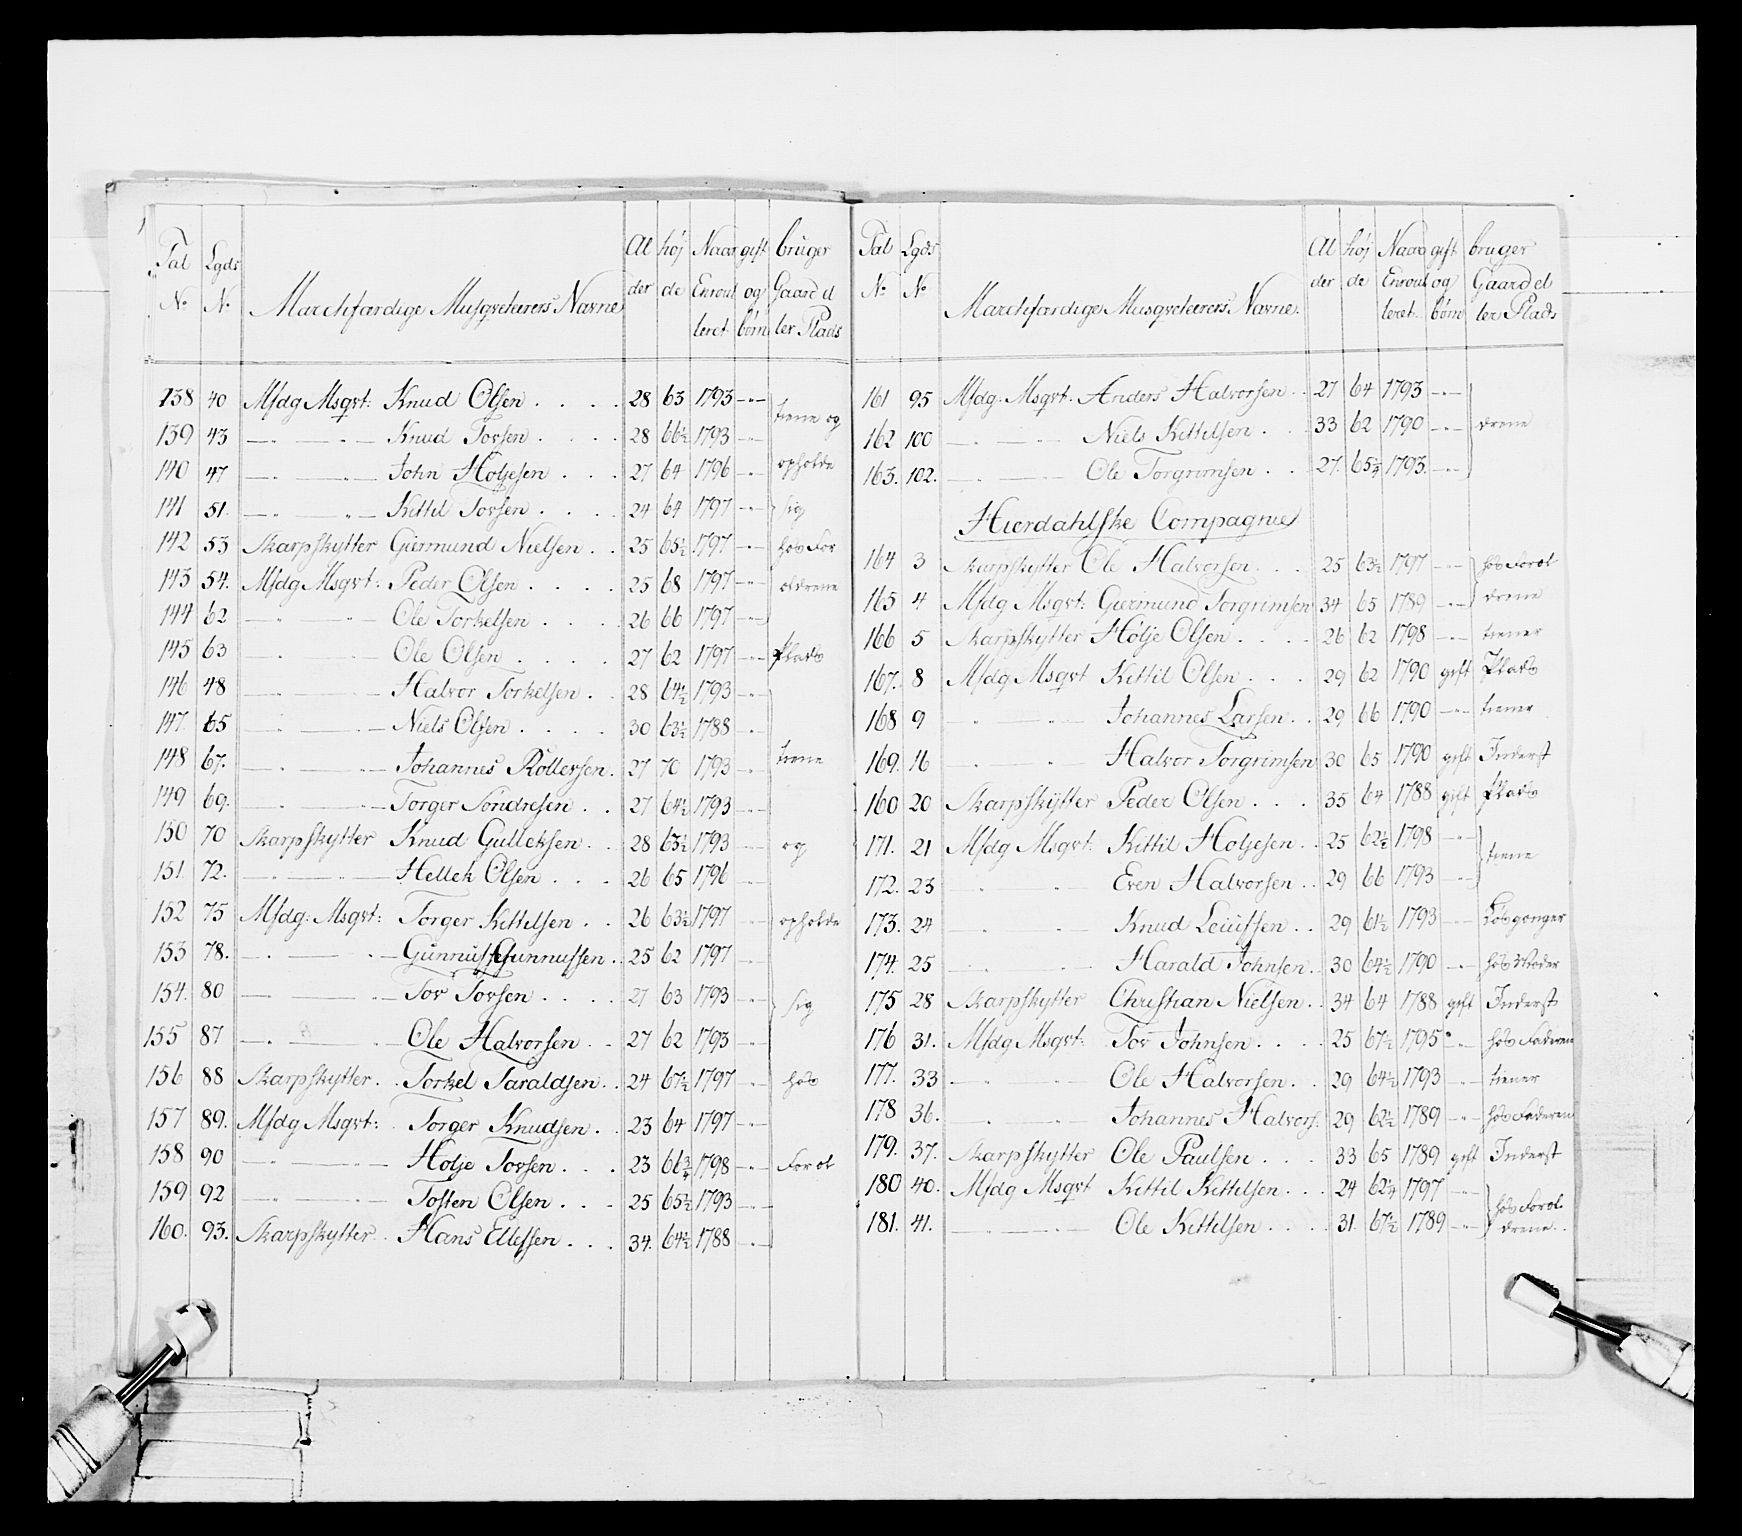 Tal Lgds Al höj Naar gift bruger
No No Marchfærdige Musqveteerers Navne der de Enroul og Gaard el
leret börn ler Plads
138 40 Mfdg Msqvt: Knud Olsen . . . . 28 63 1793 —"—
139 43 — " — Knud Torsen . . . . 28 66½ 1793 —"— tiene og
140 47 — " — John Holjesen . . . 27 64 1796 —"— opholde
141 51. — " — Kittil Torsen . . . . 24 64 1797 —"— sig
142 53 Skarpskytter Giermund Nielsen . . 25 65½ 1797 —"— hos For
143 54. Mfdg Msqvt: Peder Olsen . . . . 25 68 1797 —"— ældrene
144 62 — " — Ole Torkelsen . . . . 26 66 1797 —"—
145 63 — " — Ole Olsen . . . . 27 62 1797 —"— Plads
146 48 — " — Halvor Torkelsen . . 28 64½ 1793 —"—
147. 65 — " — Niels Olsen . . . . 30 63½ 1788 —"—
148 67. — " — Johannes Rollefsen . 27 70 1793 —"— tiene
149 69. — " — Torger Söndresen . . 27 64½ 1793 —"—
150 70 Skarpskytter Knud Gulleksen . . 28 63½ 1793 —"— og
151. 72. — " — Hellek Olsen . . . 26 65 1796 —"—
152 75 Mfdg: Msqvt: Torger Kittilsen . . 26 63½ 1797 —"— opholde
153 78. — " — Gunnuf Gunnufsen . . 25 62 1797 —"—
154. 80 — " — Tov Torsen . . . . 27 63 1793 —"— sig
155 87 — " — Ole Halvorsen . . 27 62 1793 —"—
156 88 Skarpskytter . . Torkel Taraldsen . . 24 67½ 1797 —"— hos
157 89. Mfdg Msqvt: Torger Knudsen . . 23 64 1797 —"—
158 90 — " — Holje Torsen . . . 23 66¾ 1798 —"— Foræl
159 92 — " — Tosten Olsen . . . 25 65½ 1793 —"—
160. 93. Skarpskytter . Hans Ellefsen . . . 34. 64½ 1788 —"—
Tal Lgds Al höj Naar gift bruger
No No Marchfærdige Musqveteerers Navne. der de Enroul og Gaard el
leret. börn ler Plads
161 95 Mfdg: Msqvt. Anders Halvorsen . . 27 64 1793 —"—
162 100 — " — Niels Kittilsen . . . 33 62 1790 —"— drene
163. 102. — " — Ole Torgrimsen . . . 27. 65¾ 1793. —"—
Hierdahlske Compagnie
164 3 Skarpskytter Ole Halvorsen . . . 25 63½ 1797 —"— hos Foræl
165 4 Mfdg Msqvt: Giermund Torgrimsen 34 65 1789 —"— drene
166 5 Skarpskytter Holje Olsen . . . . 26 62 1798 —"— tiener
167. 8 Mfdg Msqvt Kittil Olsen . . . . 29 62 1790 gift Plads
168 9 — " — Johannes Larsen . . 29 66 1790 —"— tiener
169. 16 — " — Halvor Torgrimsen 30 65 1790 gift Inderst
160 20 Skarpskÿtter Peder Olsen . . . 35 64 1788 gift Plads
171. 21 Mfdg Msqvt: Kittil Holjesen . . 25 62½ 1798 —"—
172. 23 — " — Even Halvorsen . . 29 66 1793 —"— tiene
173. 24 — " — Knud Leiüfsen . . 29 61½ 1793 —"— Lösgænger
174. 25 — " — Harald Johnsen . . 30 64½ 1790 —"— hos Moder
175 28 Skarpskytter Christian Nielsen . . 34 64 1788 gift Inderst
176 31. Mfdg Msqvt: Tov Johnsen . . . . 25 67½ 1795 —"— hos Faderen
177. 33 — " — Ole Halvorsen . . 29 64½ 1793 —"— tiener
178 36. — " — Johannes Halvors: 29 62½ 1789 —"— hos Faderen
179. 37. Skarpskytter Ole Paulsen . . . 33 65 1789 gift Inderst
180 40. Mfdg Msqvt Kittil Kittilsen . . . 24 62¼ 1797 —"— hos Foræl
181. 41. — " — Ole Kittilsen . . . . 31. 67½ 1789 —"— drene . .